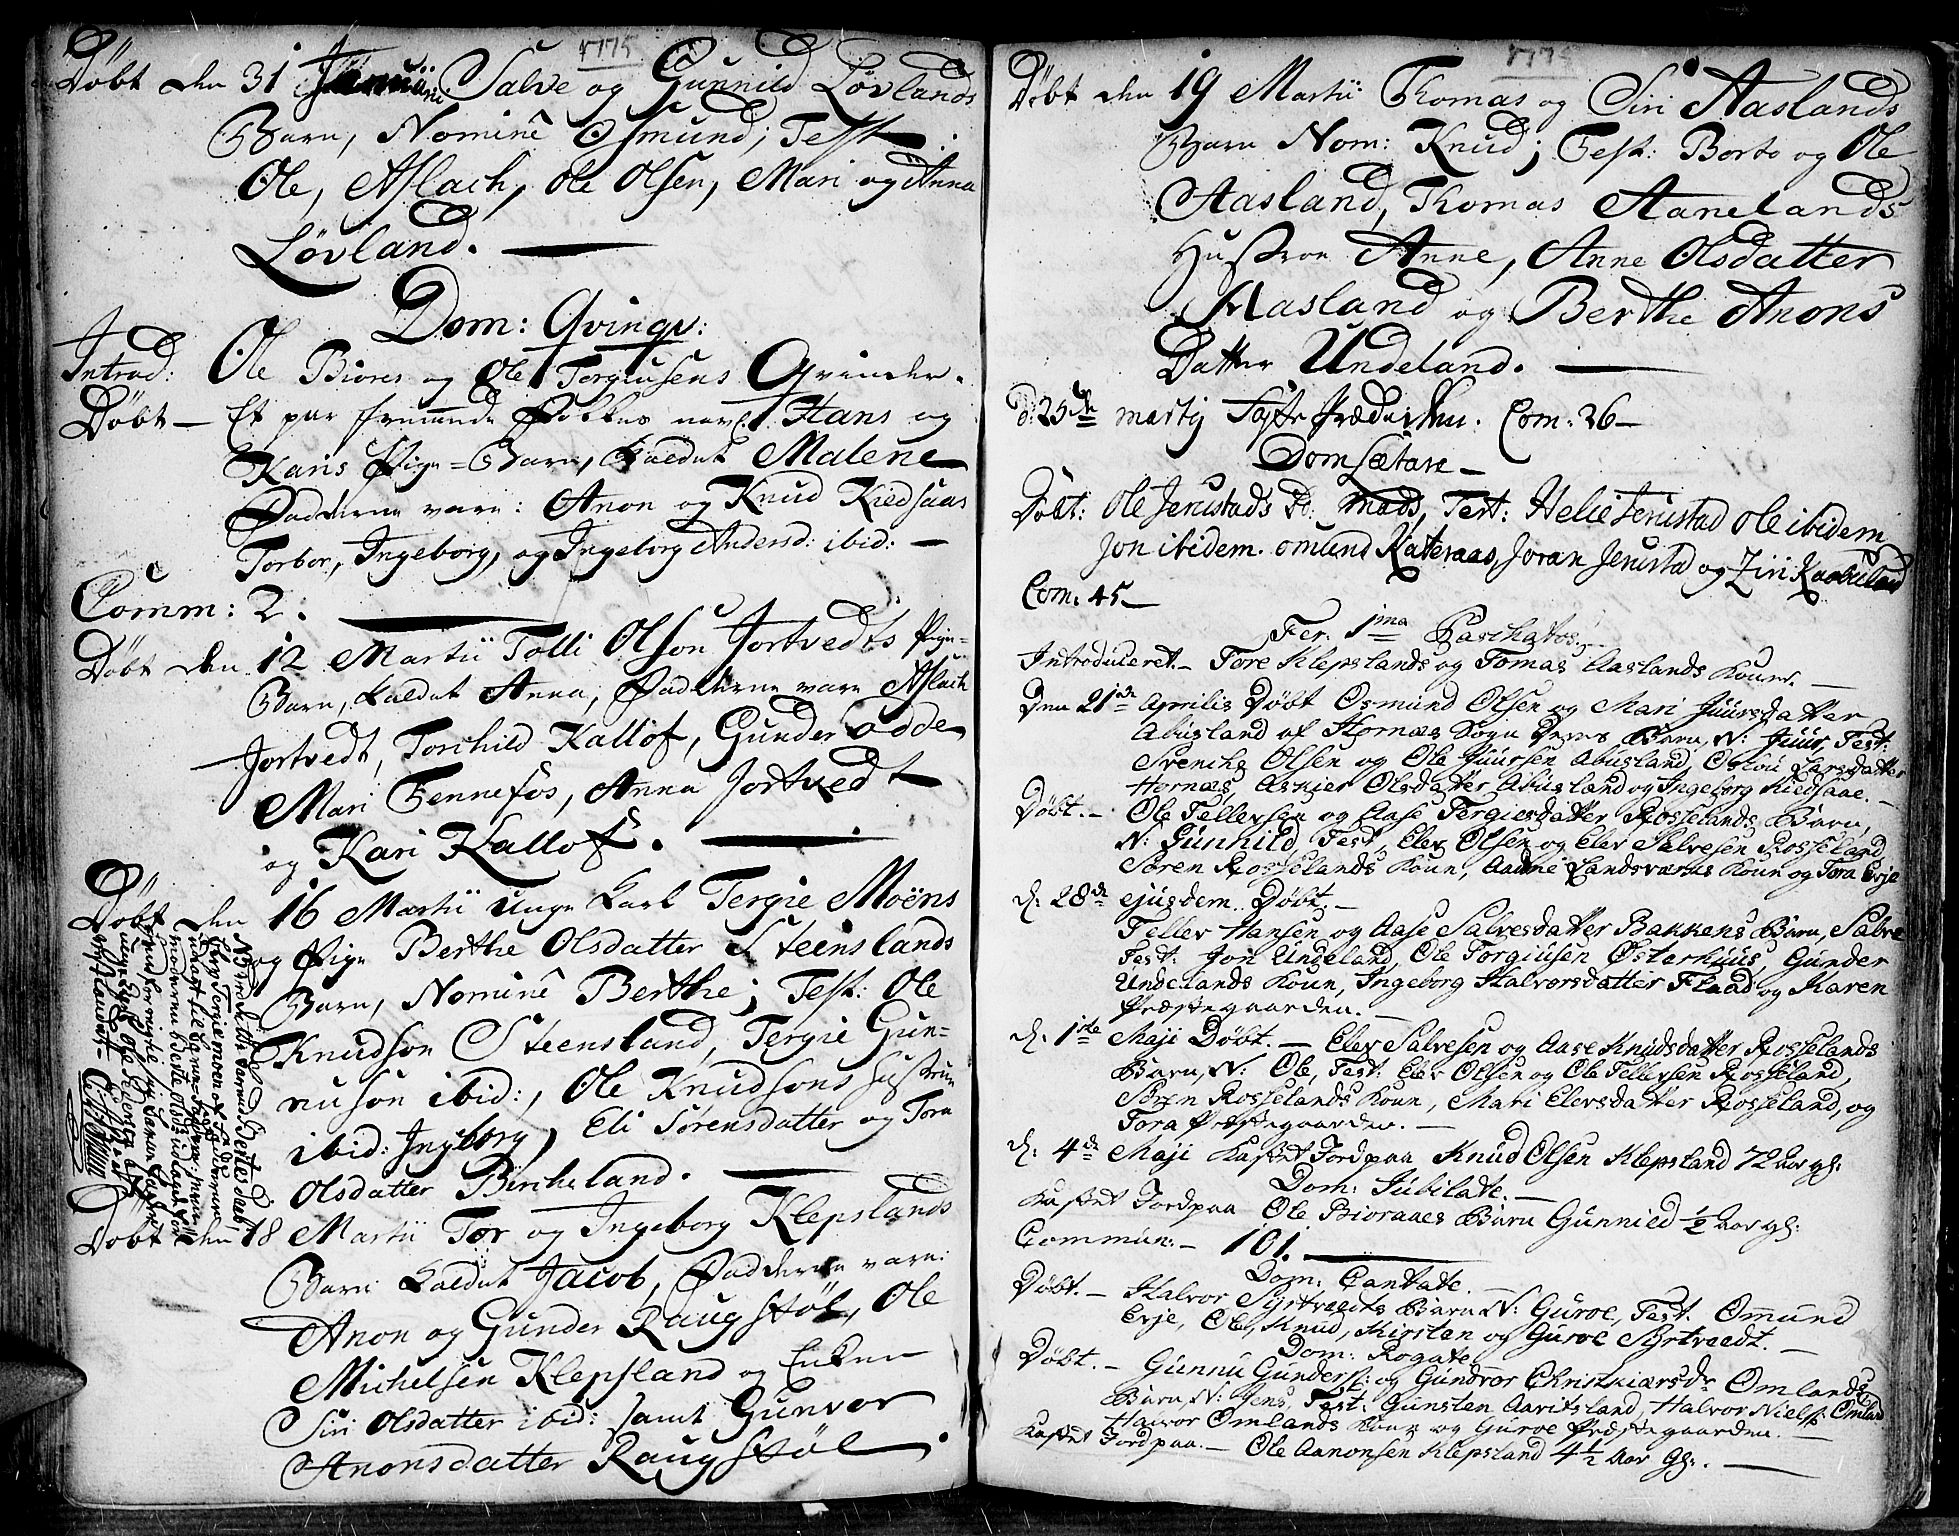 1775
Døbt den 31 Januarii Salve og Gunnild Løvlands
Barn, Nominê Osmund; Test:
Ole, Aslach, Ole Olsen, Mari og Anna
Løvland.
Dom: Qvinqv:
Introd: Ole Biores og Ole Torgiusens Qvinder.
Døbt — Et par fremmede Folkes navl. Hans og
Karis Pige-Barn, kaldet Malene
Fadderne vare: Anon og Knud Kiedsaas
Torbor, Ingeborg, og Ingeborg Andersd: ibid: —
Comm: 2.
Døbt den 12 Martii Tolli Olson Jortvedts Pige-
Barn, kaldet Anna, Fadderne vare Aslach
Jortvedt, Torchild Kallof, Gunder Odde
Mari Fennefos, Anna Jortvedt
og Kari Kallof.
Døbt den 16 Martii unge Karl Tergie Moëns
og Pige Berthe Olsdatter Steinslands
Barn, Nominê Berthe; Test: Ole
Knudson Steensland, Tergie Gun-
nuson ibid:, Ole Knudsons Hustrue
ibid: Ingborg, Eli Sørensdatter og Tora
Olsdatter Bircheland.
Døbt den 18 Martii Tor og Ingeborg Klepslands
Barn kaldet Jacob, Fadderne vare:
Anon og Gunder Raugstøl, Ole
Michelsen Klepsland og Enken
Siri Olsdatter ibid: samt Gunvor
Anonsdatter Raugstøl.
1775
Døbt den 19 Martii Thomas og Siri Aaslands
Barn Nom: Knud; Test: Borto og Ole
Aasland, Thomas Aanelands
Hustroe Anne, Anne Olsdatter
Aasland og Berthe Anons
Datter Undeland.
d: 25de martij Com: 26 —
Dom Lætare —
Døbt: Ole Jerustads B: Mads, Test: Helie Jerustad Ole ibidem
Jon ibidem. Omund Kateraas, Joran Jerustad og Ziri Kaabuland
Com: 45 —
Fer: 1ma Paschatos.
Introduceret. — Tore Klepslands og Tomas Aaslands Koner. —
Den 21de Aprilis Døbt Osmund Olsen og Mari Juursdatter
Abusland af Hornæs Sogn deres Barn, N: Juur, Test:
Svenche Olsen og Ole Juursen Abusland, Oslou Larsdatter
Hornæs, Asnier Olsdatter Abusland og Ingeborg Kiedsaae. —
Døbt. — Ole Tellevsen og Aase Tergiesdatter Rosselands Barn,
N: Gunhild, Test: Elev Olsen og Elev Salvesen Rosseland
Søren Rosselands Koun, Aadne Landsværks Koun og Tora Evje
d: 28de ejusdem. Døbt. —
Tellev Hansen og Aase Salvesdatter Bakkens Barn, Salve
Test: Jon Undeland, Ole Torgiusen Østerhuus, Gunder
Undelands Koun, Ingeborg Halvorsdatter Flaad og Karen
Præstegaarden. —
d: 1ste Maji Døbt. — Elev Salvesen og Aase Knudsdatter Rosselands
Barn, N: Ole, Test: Elev Olsen og Ole Tellevsen Rosseland,
Søren Rosselands Koun, Mari Elevsdatter Rosseland, og
Tora Præstegaarden. —
d: 4de Maji Kastet Jord paa Knud Olsen Klepsland 72 Aar gl:
Dom: Jubilate. —
Kastet Jord paa Ole Bioraaes Barn Gunnied ½ Aar gl:
Commun: — 101.
Dom: Cantate. —
Døbt. — Halvor Syrtveedts Barn N: Guroe, Test: Omund
Evje, Ole, Knud, Kirsten og Guroe Syrtveedt. —
Dom: Rogate
Døbt. — Gunnu Gunders: og Gundvor Christniærsdr Omlands
Barn, N: Jens, Test: Gunsten Aaritsland, Halvor Niels: Omland
Halvor Omlands Koun og Guroe Præstegaarden. —
Kastet Jord paa. — Ole Aanonsen Klepsland 4½ Aar gl: . —